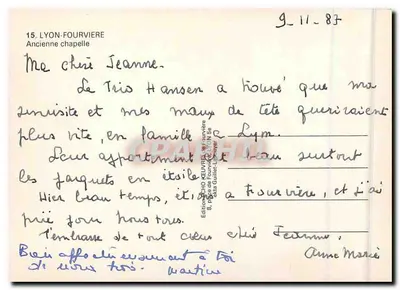 15. LYON-FOURVIERE
Ancienne chapelle
9-11-87
Ma chère Jeanne.
Le Trio Hansen a trouvé que ma
sinusite et mes maux de tête guériraient
plus vite, en famille à Lyon.
Leur appartement est beau surtout
les parquets en étoile.
Hier beau temps, étions à Fourvière, et j'ai
prié pour nous tous.
t'embrasse de tout cœur chère Jeanne,
Anne Marie
Bien affectueusement à toi
de nous trois. Martine